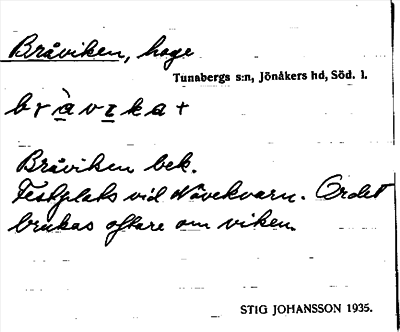 Bråviken, hage
Tunabergs s:n, Jönåkers hd, Söd. l.
bràvika+
Bråviken bek.
Festplats vid Nävekvarn. Ordet
brukas oftare om viken.
STIG JOHANSSON 1935.